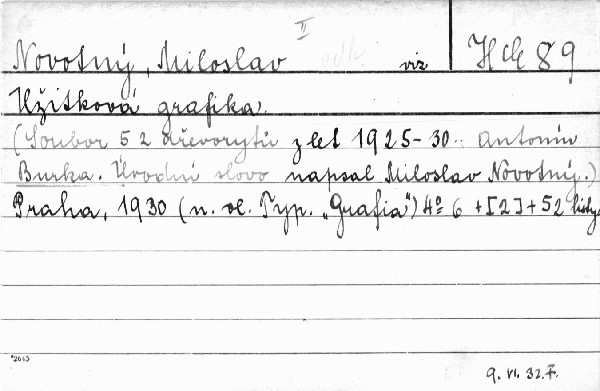 II
Novotný, Miloslav viz
Užitková grafika.
(Soubor 52 dřevorytů z let 1925-30. Antonín
Burka. Úvodní slovo napsal Miloslav Novotný.)
Praha, 1930 (n. vl. Typ. „Grafia") 4º 6 + [2] + 52 listy
*2043
9. VI. 32. F.